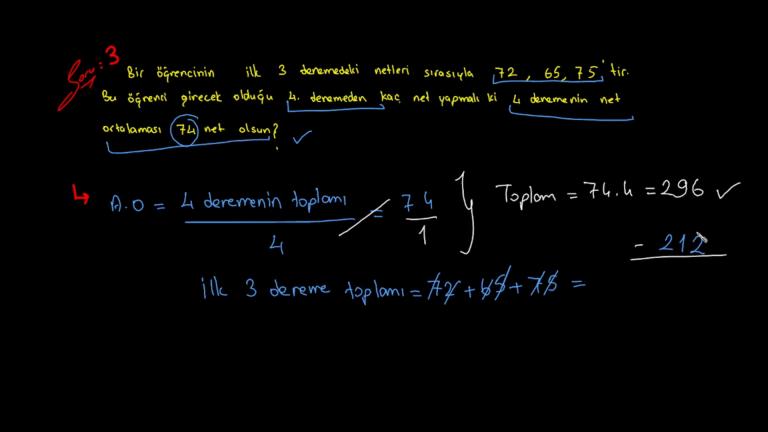 Soru: 3
Bir öğrencinin ilk 3 denemedeki netleri sırasıyla 72, 65, 75'tir.
Bu öğrenci girecek olduğu 4. denemeden kaç net yapmalı ki 4 denemenin net
ortalaması 74 net olsun?
A.O = 4 denemenin toplamı / 4 = 74 / 1
Toplam = 74.4 = 296
- 212
ilk 3 deneme toplamı = 72 + 65 + 75 =